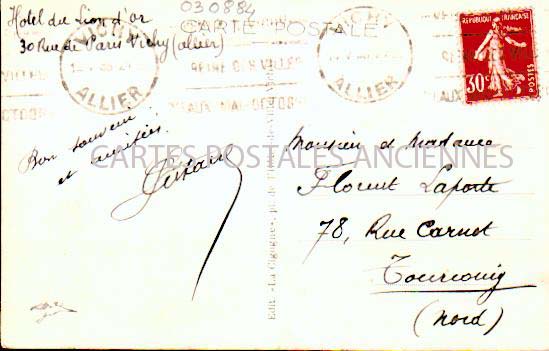 Hotel du Lion d'or
30 Rue de Paris Vichy (allier)
030884
CARTE POSTALE
VICHY
ALLIER
REINE DES VILLES
REPUBLIQUE FRANÇAISE
30c
POSTES
Bon souvenir
et amitiés
CARTES POSTALES ANCIENNES
Monsieur et Madame
Florent Laporte
78, Rue Carnot
Tourcoing
(Nord)
Edit. "La Cigogne",